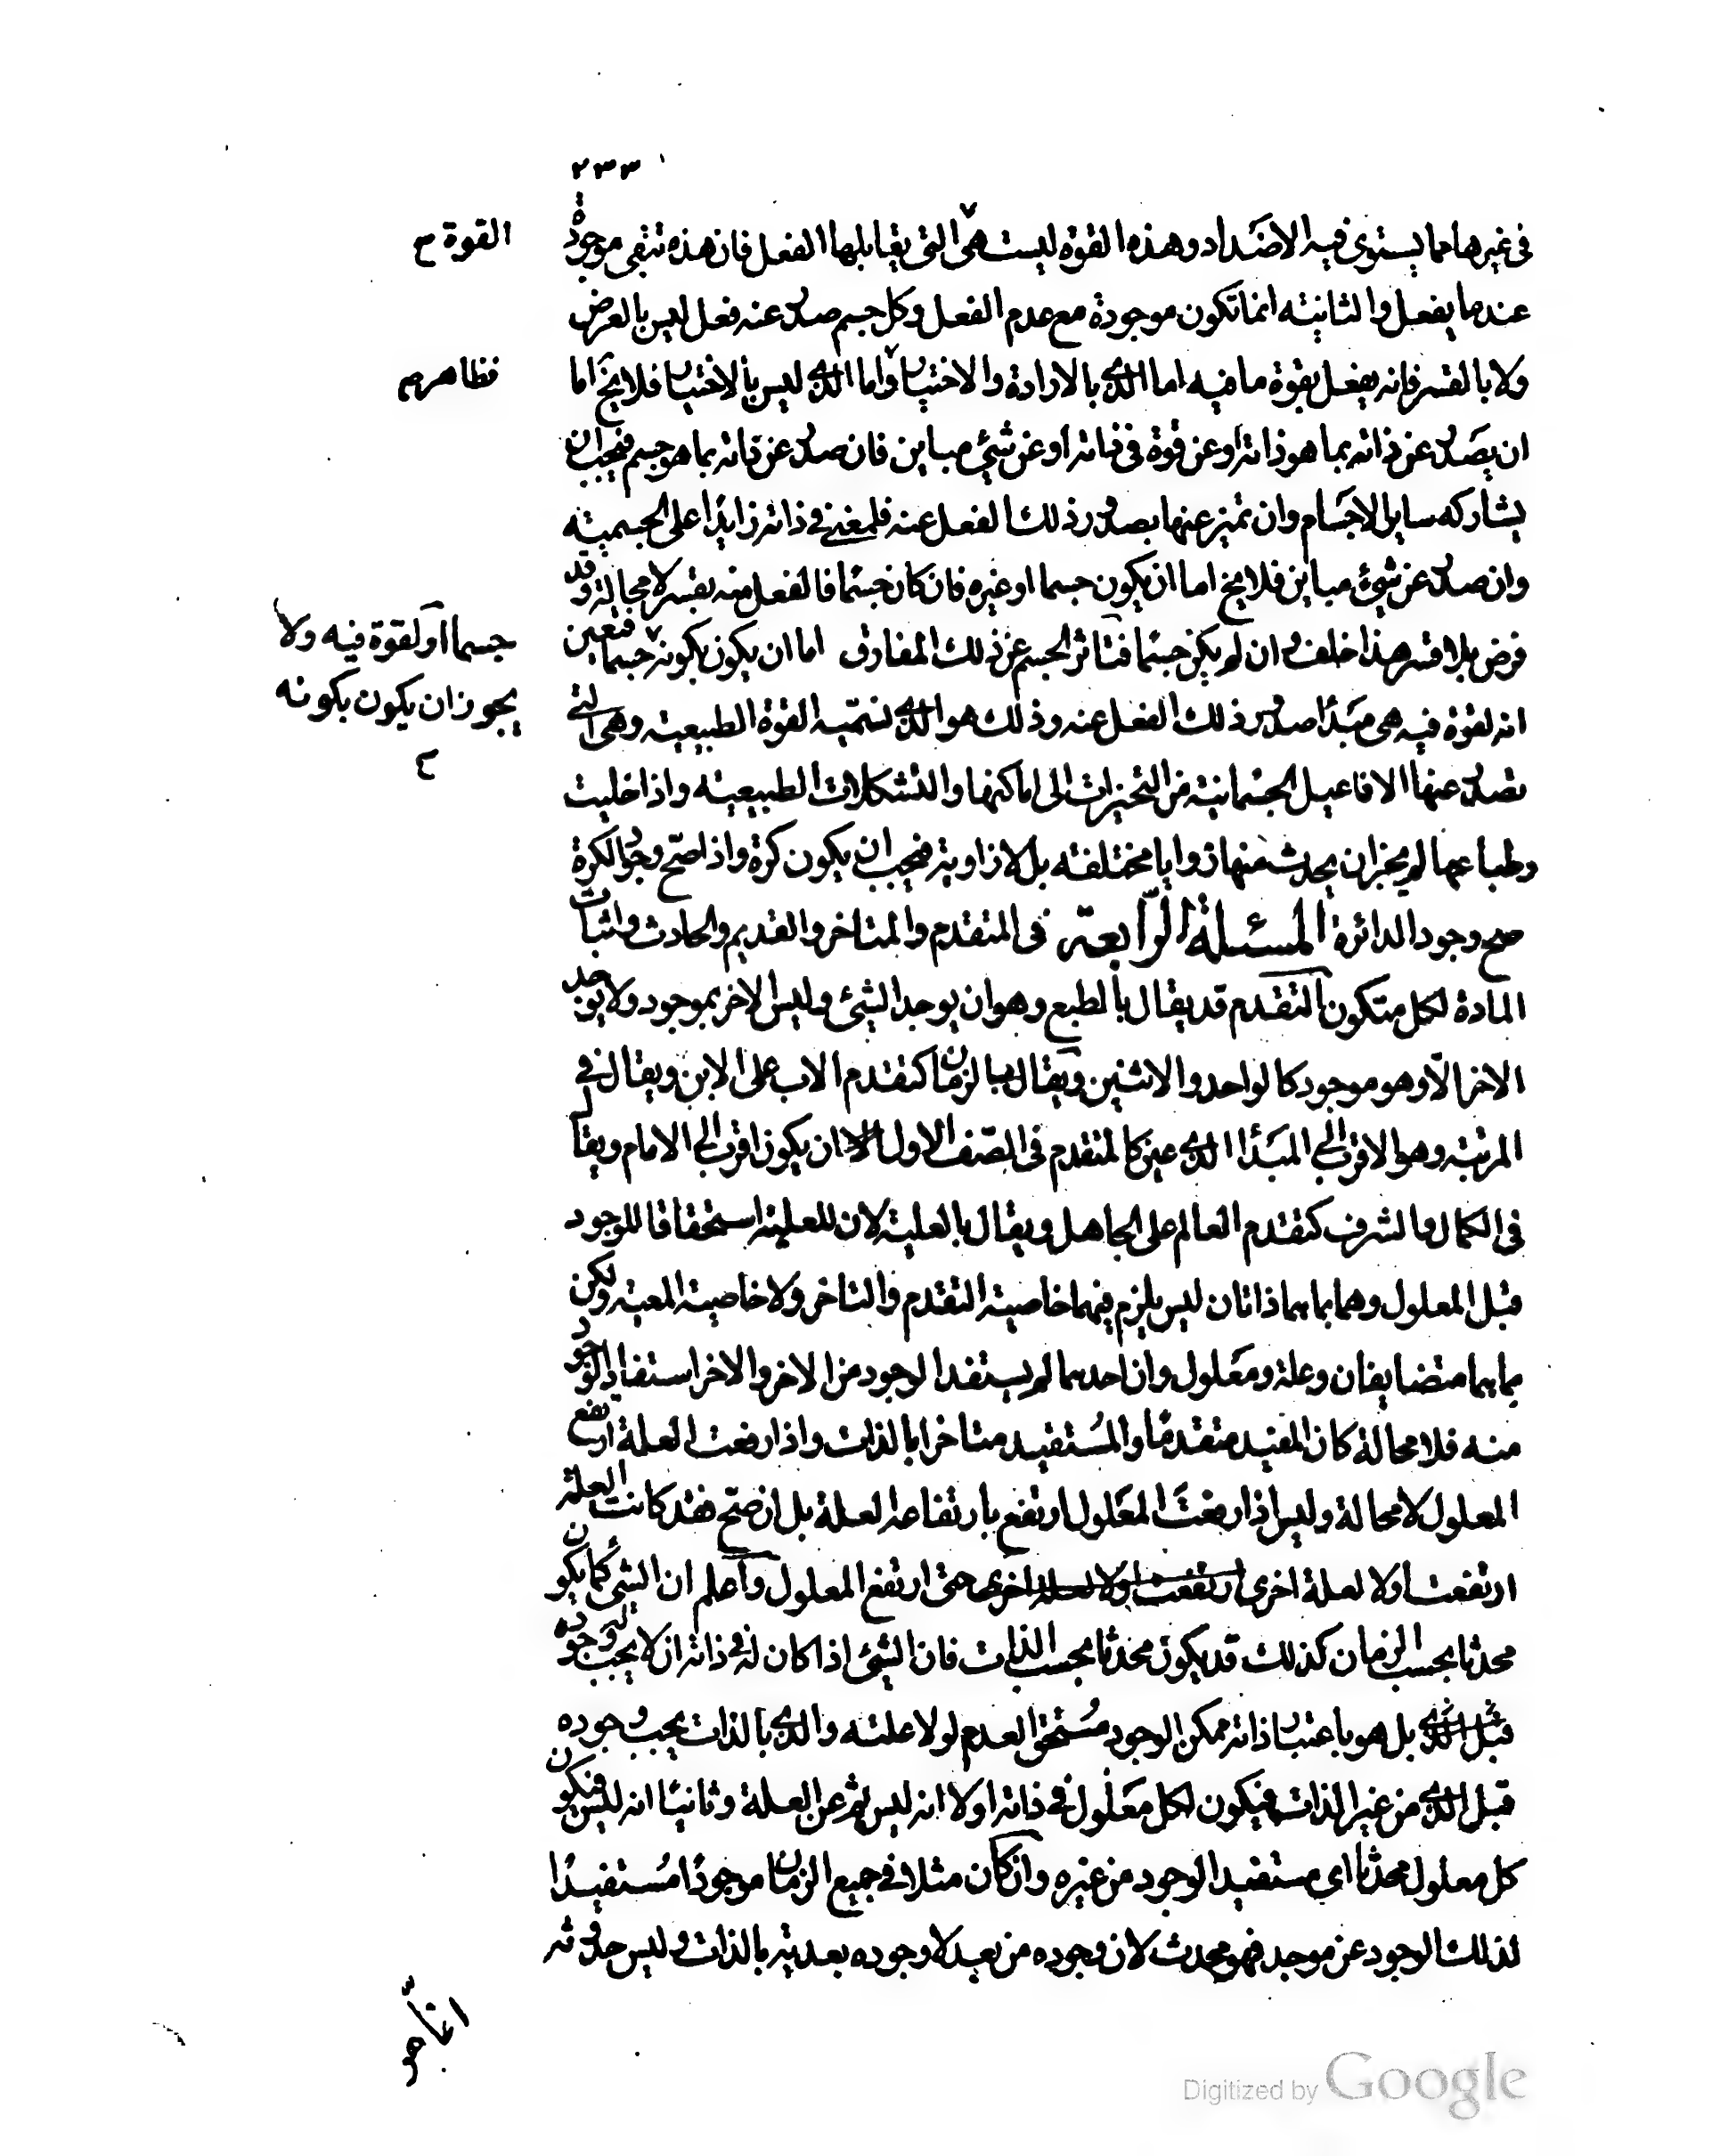 ٢٣٣
في غيرها مما يستوي فيه الاضداد وهذه القوة ليست هي التي يقابلها الفعل فان هذه تبقى موجودة
القوة ع
عندما يفعل والثانية انما تكون موجودة مع عدم الفعل وكل جسم صدر عنه فعل ليس بالعرض
ولا بالقسر فانه يفعل بقوة ما فيه اما الذي بالارادة والاختيار واما الذي ليس بالاختيار فلا يخ اما
فظاهر م
ان يصدر عن ذاته بما هو ذاته او عن قوة في ذاته او عن شيء مباين فان صدر عن ذاته بما هو جسم فيجب ان
يشاركه ساير الاجسام وان تميز عنها بصدور ذلك الفعل عنه فلمعنى في ذاته زايدا على الجسمية
وان صدر عن شيء مباين فلا يخ اما ان يكون جسما او غيره فان كان جسما فالفعل منه بقسر لا محالة وقد
فرض بلا قسر هذا خلف وان لم يكن جسما فتاثر الجسم عن ذلك المفارق اما ان يكون بكونه جسما فتعين
جسما او لقوة فيه ولا
يجوز ان يكون بكونه
ع
انه لقوة فيه هي مبدا صدور ذلك الفعل عنه وذلك هو الذي نسميه القوة الطبيعية وهي التي
تصدر عنها الافاعيل الجسمانية من التحيزات الى اماكنها والتشكلات الطبيعية واذا خليت
وطباعها لم يجز ان يحدث منها زوايا مختلفة بل لا زاوية فيجب ان يكون كرة واذا صح وجود الكرة
صح وجود الدائرة المسئلة الرابعة في المتقدم والمتاخر والقديم والحادث واثبات
المادة لكل متكون التقدم قد يقال بالطبع وهو ان يوجد الشيء وليس الاخر بموجود ولا يوجد
الاخر الا وهو موجود كالواحد والاثنين ويقال بالزمان كتقدم الاب على الابن ويقال في
المرتبة وهو الاقرب الى المبدا الذي عين كالمتقدم في الصف الاول ان يكون اقرب الى الامام ويقال
في الكمال والشرف كتقدم العالم على الجاهل ويقال بالعلية لان للعلية استحقاقا للوجود
قبل المعلول وهما بما هما ذاتان ليس يلزم فيهما خاصية التقدم والتاخر ولا خاصية المعية ولكن
بما هما متضايفان وعلة ومعلول وان احدهما لم يستفد الوجود من الاخر والاخر استفاد الوجود
منه فلا محالة كان المفيد متقدما والمستفيد متاخرا بالذات واذا رفعت العلة ارتفع
المعلول لا محالة وليس اذا رفعت المعلول ارتفع بارتفاعه العلة بل ان صح فقد كانت العلة
ارتفعت اولا لعلة اخرى ارتفعت اولا لعلة اخرى حتى ارتفع المعلول واعلم ان الشيء كما يكون
محدثا بحسب الزمان كذلك قد يكون محدثا بحسب الذات فان الشيء اذا كان له في ذاته ان لا يجب له وجوده
بل هو باعتبار ذاته ممكن الوجود مستحق العدم لولا علته والذي بالذات يجب وجوده
قبل الذي من غير الذات فيكون لكل معلول في ذاته اولا انه ليس ثم عن العلة وثانيا انه ليس فيكون
كل معلول محدثا اي مستفيد الوجود من غيره وان كان مثلا في جميع الزمان موجودا مستفيدا
لذلك الوجود عن موجد فهو محدث لان وجوده من بعد لا وجوده بعدية بالذات وليس حدوثه